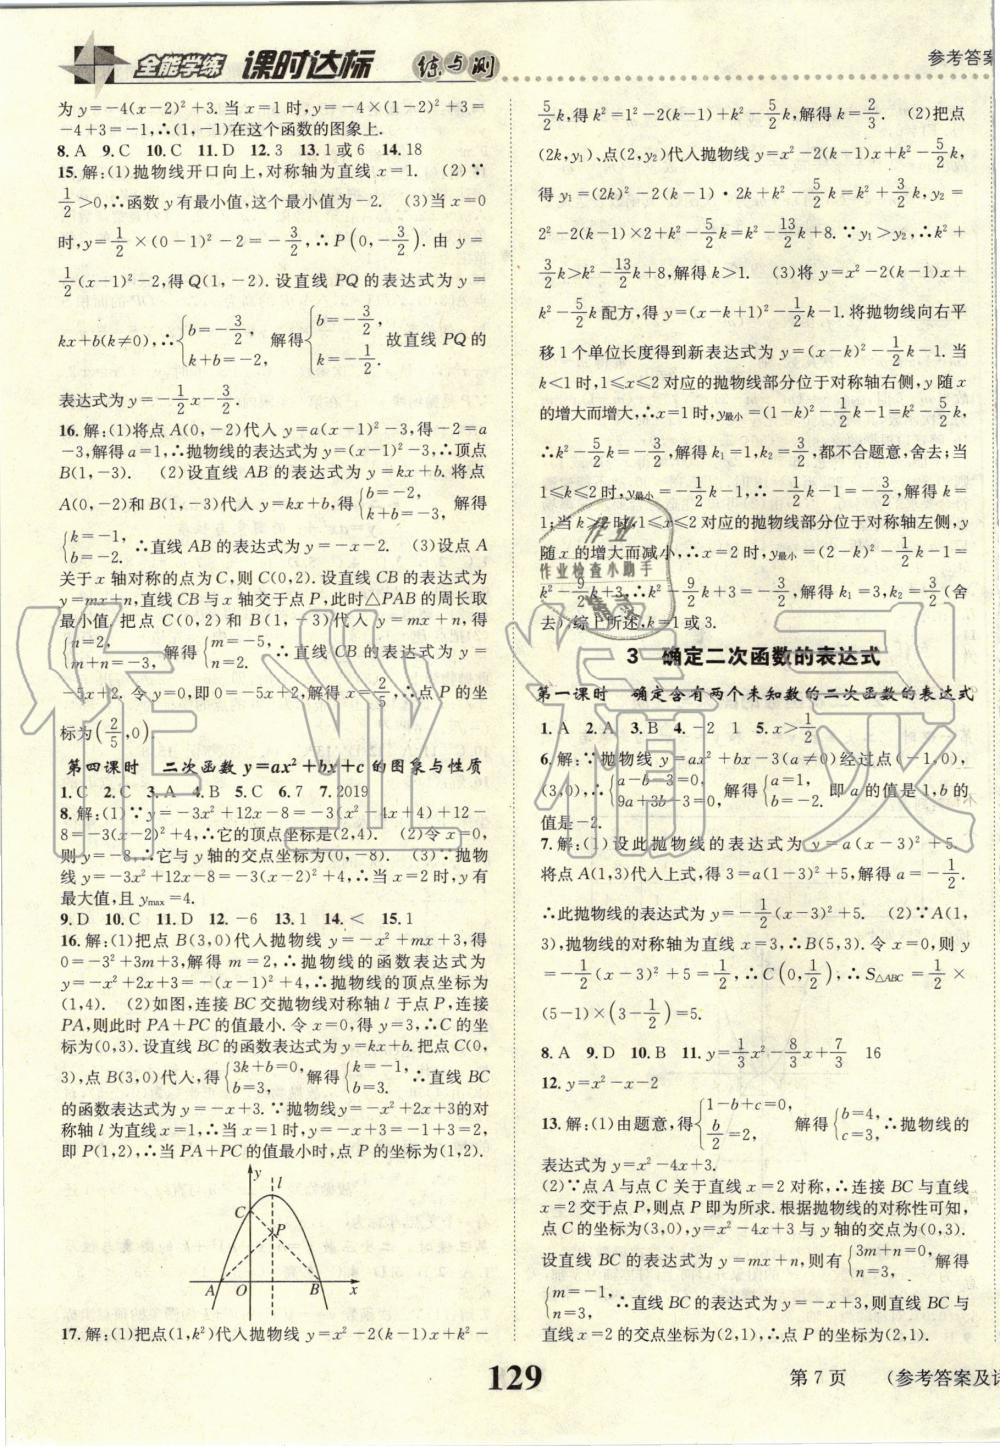 全能学练 课时达标 练与测
参考答案
为y=-4(x-2)²+3.当x=1时,y=-4×(1-2)²+3=
-4+3=-1,∴(1,-1)在这个函数的图象上.
8.A 9.C 10.C 11.D 12.3 13.1或6 14.18
15.解:(1)抛物线开口向上,对称轴为直线x=1. (2)∵
1/2>0,∴函数y有最小值,这个最小值为-2. (3)当x=0
时,y=1/2×(0-1)²-2=-3/2,∴P(0,-3/2).由y=
1/2(x-1)²-2,得Q(1,-2).设直线PQ的表达式为y=
kx+b(k≠0),∴{b=-3/2, k+b=-2, 解得{b=-3/2, k=-1/2. 故直线PQ的
表达式为y=-1/2x-3/2.
16.解:(1)将点A(0,-2)代入y=a(x-1)²-3,得-2=a
-3,解得a=1,∴抛物线的表达式为y=(x-1)²-3,∴顶点
B(1,-3). (2)设直线AB的表达式为y=kx+b.将点
A(0,-2)和B(1,-3)代入y=kx+b,得{b=-2, k+b=-3, 解得
{k=-1, b=-2. ∴直线AB的表达式为y=-x-2. (3)设点A
关于x轴对称的点为C,则C(0,2).设直线CB的表达式为
y=mx+n,直线CB与x轴交于点P,此时△PAB的周长取
最小值.把点C(0,2)和B(1,-3)代入y=mx+n,得
{n=2, m+n=-3, 解得{m=-5, n=2. ∴直线CB的表达式为y=
-5x+2.令y=0,即0=-5x+2,解得x=2/5,∴点P的坐
标为(2/5,0).
第四课时 二次函数y=ax²+bx+c的图象与性质
1.C 2.C 3.A 4.B 5.C 6.7 7.2019
8.解:(1)∵y=-3x²+12x-8=-3(x²-4x+4)+12-
8=-3(x-2)²+4,∴它的顶点坐标是(2,4). (2)令x=0,
则y=-8,∴它与y轴的交点坐标为(0,-8). (3)∵抛物
线y=-3x²+12x-8=-3(x-2)²+4,∴当x=2时,y有
最大值,且ymax=4.
9.D 10.C 11.D 12.-6 13.1 14.< 15.1
16.解:(1)把点B(3,0)代入抛物线y=-x²+mx+3,得
0=-3²+3m+3,解得m=2,∴抛物线的函数表达式为
y=-x²+2x+3=-(x-1)²+4,∴抛物线的顶点坐标为
(1,4). (2)如图,连接BC交抛物线对称轴l于点P,连接
PA,则此时PA+PC的值最小.令x=0,得y=3,∴C的坐
标为(0,3).设直线BC的函数表达式为y=kx+b.把点C(0,
3),点B(3,0)代入,得{3k+b=0, b=3, 解得{k=-1, b=3, ∴直线BC
的函数表达式为y=-x+3.∵抛物线y=-x²+2x+3的对
称轴l为直线x=1,∴当x=1时,y=-x+3=-1+3=2,
即P(1,2),∴当PA+PC的值最小时,点P的坐标为(1,2).
y l
C P
A O B x
17.解:(1)把点(1,k²)代入抛物线y=x²-2(k-1)x+k²-
5/2k,得k²=1²-2(k-1)+k²-5/2k,解得k=2/3. (2)把点
(2k,y₁)、点(2,y₂)代入抛物线y=x²-2(k-1)x+k²-5/2k,
得y₁=(2k)²-2(k-1)·2k+k²-5/2k=k²+3/2k,y₂=
2²-2(k-1)×2+k²-5/2k=k²-13/2k+8.∵y₁>y₂,∴k²+
3/2k>k²-13/2k+8,解得k>1. (3)将y=x²-2(k-1)x+
k²-5/2k配方,得y=(x-k+1)²-1/2k-1.将抛物线向右平
移1个单位长度得到新表达式为y=(x-k)²-1/2k-1.当
k<1时,1≤x≤2对应的抛物线部分位于对称轴右侧,y随x
的增大而增大,∴x=1时,y最小=(1-k)²-1/2k-1=k²-5/2k,
∴k²-5/2k=-3/2,解得k₁=1,k₂=3/2,都不合题意,舍去;当
1≤k≤2时,y最小=-1/2k-1,∴-1/2k-1=-3/2,解得k=
1;当k>2时,1≤x≤2对应的抛物线部分位于对称轴左侧,y
随x的增大而减小,∴x=2时,y最小=(2-k)²-1/2k-1=
k²-9/2k+3,∴k²-9/2k+3=-3/2,解得k₁=3,k₂=3/2(舍
去);综上所述,k=1或3.
3 确定二次函数的表达式
第一课时 确定含有两个未知数的二次函数的表达式
1.A 2.A 3.B 4.-2 1 5.x>1/2
6.解:∵抛物线y=ax²+bx-3(a≠0)经过点(-1,0),
(3,0),∴{a-b-3=0, 9a+3b-3=0, 解得{a=1, b=-2. 即a的值是1,b的
值是-2.
7.解:(1)设此抛物线的表达式为y=a(x-3)²+5.
将点A(1,3)代入上式,得3=a(1-3)²+5,解得a=-1/2.
∴此抛物线的表达式为y=-1/2(x-3)²+5. (2)∵A(1,
3),抛物线的对称轴为直线x=3,∴B(5,3).令x=0,则y
=-1/2(x-3)²+5=1/2,∴C(0,1/2),∴S△ABC=1/2×
(5-1)×(3-1/2)=5.
8.A 9.D 10.B 11.y=1/3x²-8/3x+7/3 16
12.y=x²-x-2
13.解:(1)由题意,得{1-b+c=0, b/2=2, 解得{b=4, c=3, ∴抛物线的
表达式为y=x²-4x+3.
(2)∵点A与点C关于直线x=2对称,∴连接BC与直线
x=2交于点P,则点P即为所求.根据抛物线的对称性可知,
点C的坐标为(3,0),y=x²-4x+3与y轴的交点为(0,3).
设直线BC的表达式为y=mx+n,则有{3m+n=0, n=3, 解得
{m=-1, n=3, ∴直线BC的表达式为y=-x+3,则直线BC与
直线x=2的交点坐标为(2,1),∴点P的坐标为(2,1).
129
第7页 (参考答案及
作业
作业检查小助手
精灵
作业精灵